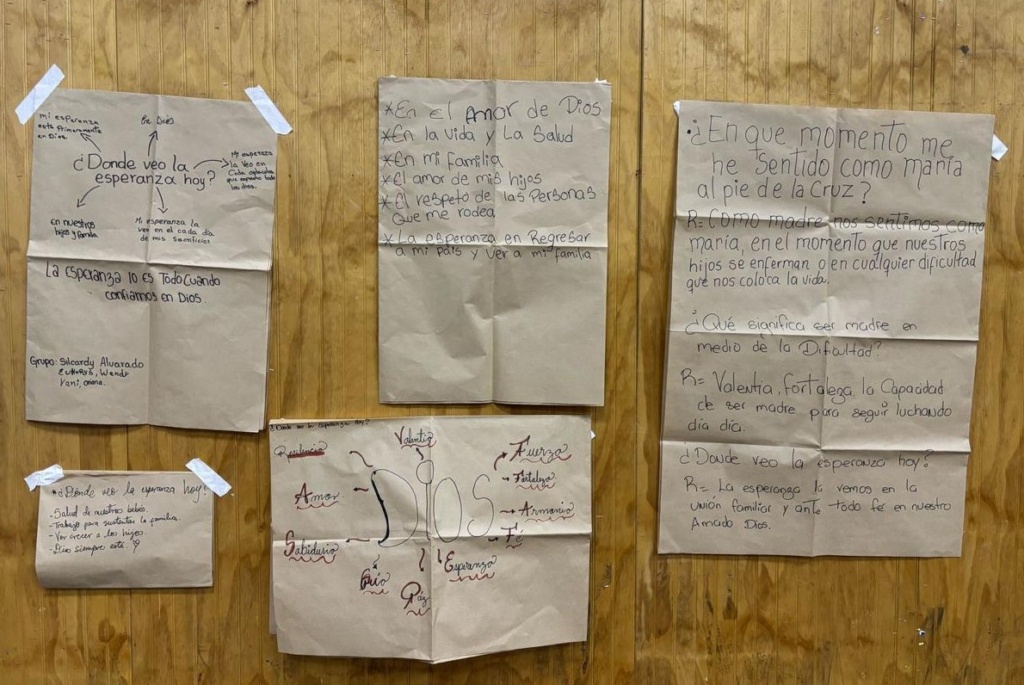 mi esperanza
esta Primeramente
en Dios
En Dios
¿Donde veo la
esperanza hoy?
Mi esperanza
la veo en
Cada
que
los dias.
en nuestros
hijos y familia
Mi esperanza la
veo en el cada dia
de mis sacrificios
La esperanza lo es Todo Cuando
confiamos en Dios.
Grupo: Silcardy Alvarado
Wendy
Yani,
*En El Amor de Dios
*En la vida y La Salud
*En mi familia
*El amor de mis hijos
*El respeto de las Personas
Que me rodea
*La esperanza en Regresar
a mi país y ver a mi familia
¿En que momento me
he sentido como maría
al pie de la Cruz?
R= Como madre nos sentimos como
maría, en el momento que nuestros
hijos se enferman o en cualquier dificultad
que nos coloca la vida.
¿Qué significa ser madre en
medio de la Dificultad?
R= Valentía, fortaleza, la Capacidad
de ser madre para seguir luchando
día día.
¿Donde veo la esperanza hoy?
R= La esperanza la vemos en la
unión familiar y ante todo fé en nuestro
Amado Dios.
*¿Dónde veo la esperanza hoy?
- Salud de nuestros bebés.
- Trabajo para sustentar la familia.
- Ver crecer a los hijos.
- Dios siempre está.
¿Donde veo la esperanza Hoy?
Valentia
Fuerza
Amor
DIOS
Fortaleza
Armonia
Sabiduria
Fé
Esperanza
Paz